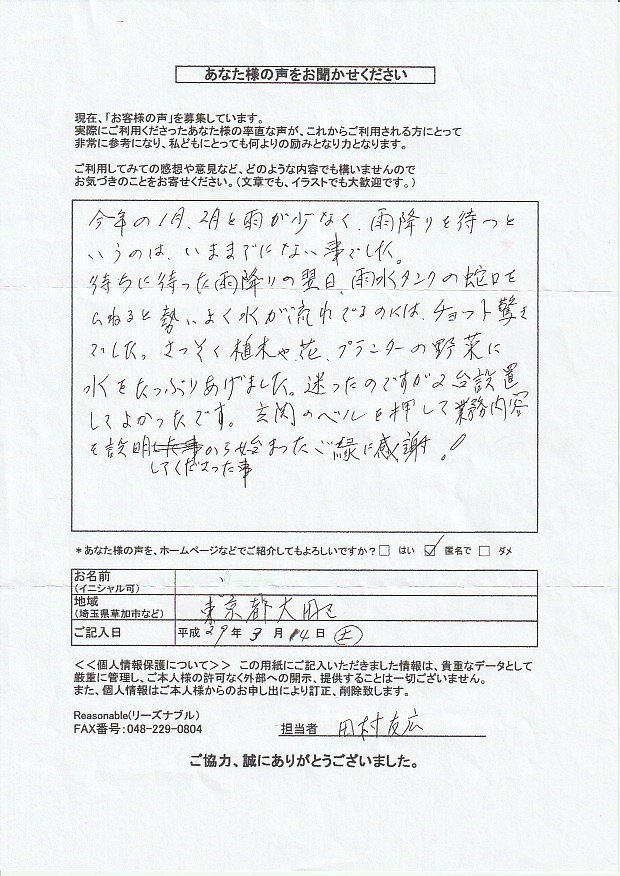 あなた様の声をお聞かせください
現在、「お客様の声」を募集しています。
実際にご利用くださったあなた様の率直な声が、これからご利用される方にとって
非常に参考になり、私どもにとっても何よりの励みとなり力となります。
ご利用してみての感想や意見など、どのような内容でも構いませんので
お気づきのことをお寄せください。(文章でも、イラストでも大歓迎です。)
今年の1月、2月と雨が少なく、雨降りを待つと
いうのは、いままでにない事でした。
待ちに待った雨降りの翌日、雨水タンクの蛇口を
ひねると勢いよく水が流れでるのには、チョット驚き
ました。さっそく植木や、花、プランターの野菜に
水をたっぷりあげました。迷ったのですが2台設置
してよかったです。玄関のベルを押して業務内容
を説明してくださった事から始まったご縁に感謝!
*あなた様の声を、ホームページなどでご紹介してもよろしいですか? □ はい ☑ 匿名で □ ダメ
お名前
(イニシャル可)
地域
(埼玉県草加市など) 東京都大田区
ご記入日 平成 29 年 3 月 14 日 (土)
<<個人情報保護について>> この用紙にご記入いただきました情報は、貴重なデータとして
厳重に管理し、ご本人様の許可なく外部への開示、提供することは一切ございません。
また、個人情報はご本人様からのお申し出により訂正、削除致します。
Reasonable(リーズナブル)
FAX番号:048-229-0804 担当者 田村友広
ご協力、誠にありがとうございました。